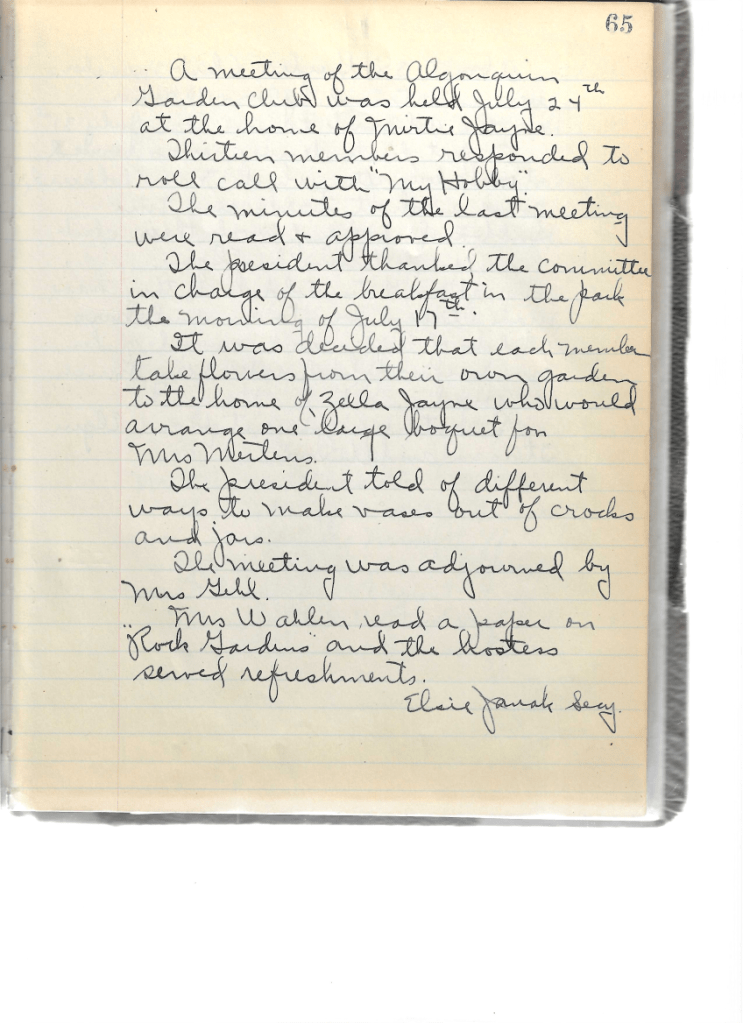 65
A meeting of the Algonquin
Garden Club was held July 24th
at the home of Mirtie Jayne.
Thirteen members responded to
roll call with "My Hobby".
The minutes of the last meeting
were read & approved.
The president thanked the committee
in charge of the breakfast in the park
the morning of July 17th.
It was decided that each member
take flowers from their own garden
to the home of Zella Jayne who would
arrange one large boquet for
Mrs Mertens.
The president told of different
ways to make vases out of crocks
and jars.
The meeting was adjourned by
Mrs Gehl.
Mrs Wahlen read a paper on
"Rock Gardens" and the hostess
served refreshments.
Elsie Janak Secy.